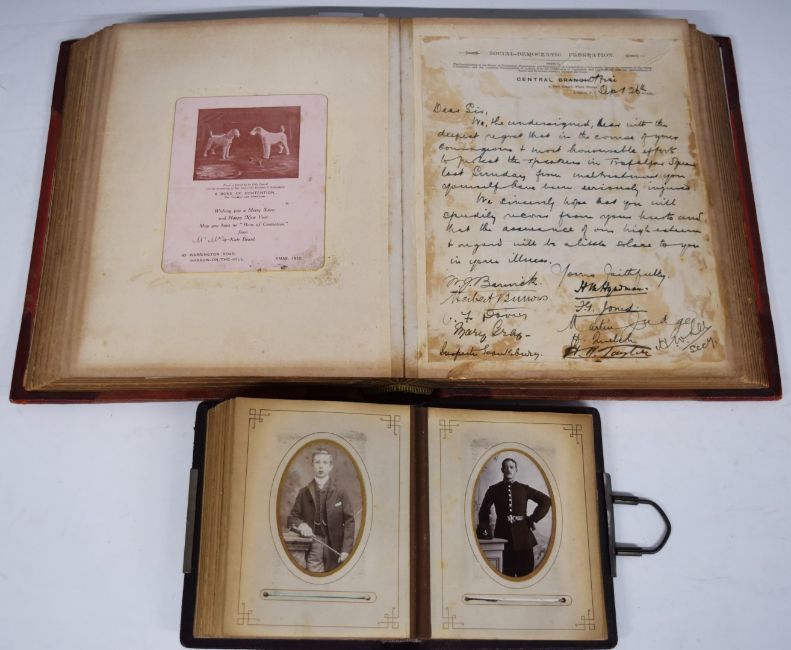 A BONE OF CONTENTION.
Wishing you a Merry Xmas
and Happy New Year.
May you have no "Bone of Contention."
from
Kate Beard.
HARROW-ON-THE-HILL. XMAS, 1910
SOCIAL-DEMOCRATIC FEDERATION.
CENTRAL BRANCH
Sept 26th
Dear Sir,
We, the undersigned, hear with the
deepest regret that in the course of your
courageous & most honourable effort
to protect the speakers in Trafalgar Square
last Sunday from maltreatment you
yourself have been seriously injured.
We sincerely hope that you will
speedily recover from your hurts and
that the assurance of our high esteem
& regard will be a little solace to you
in your illness.
Yours faithfully
W. G. Barwick. H. M. Hyndman.
Herbert Burrows F. G. Jones
Davies Martin Judge
Mary Gray H. W. Lee
H. W. Taylor Secy.